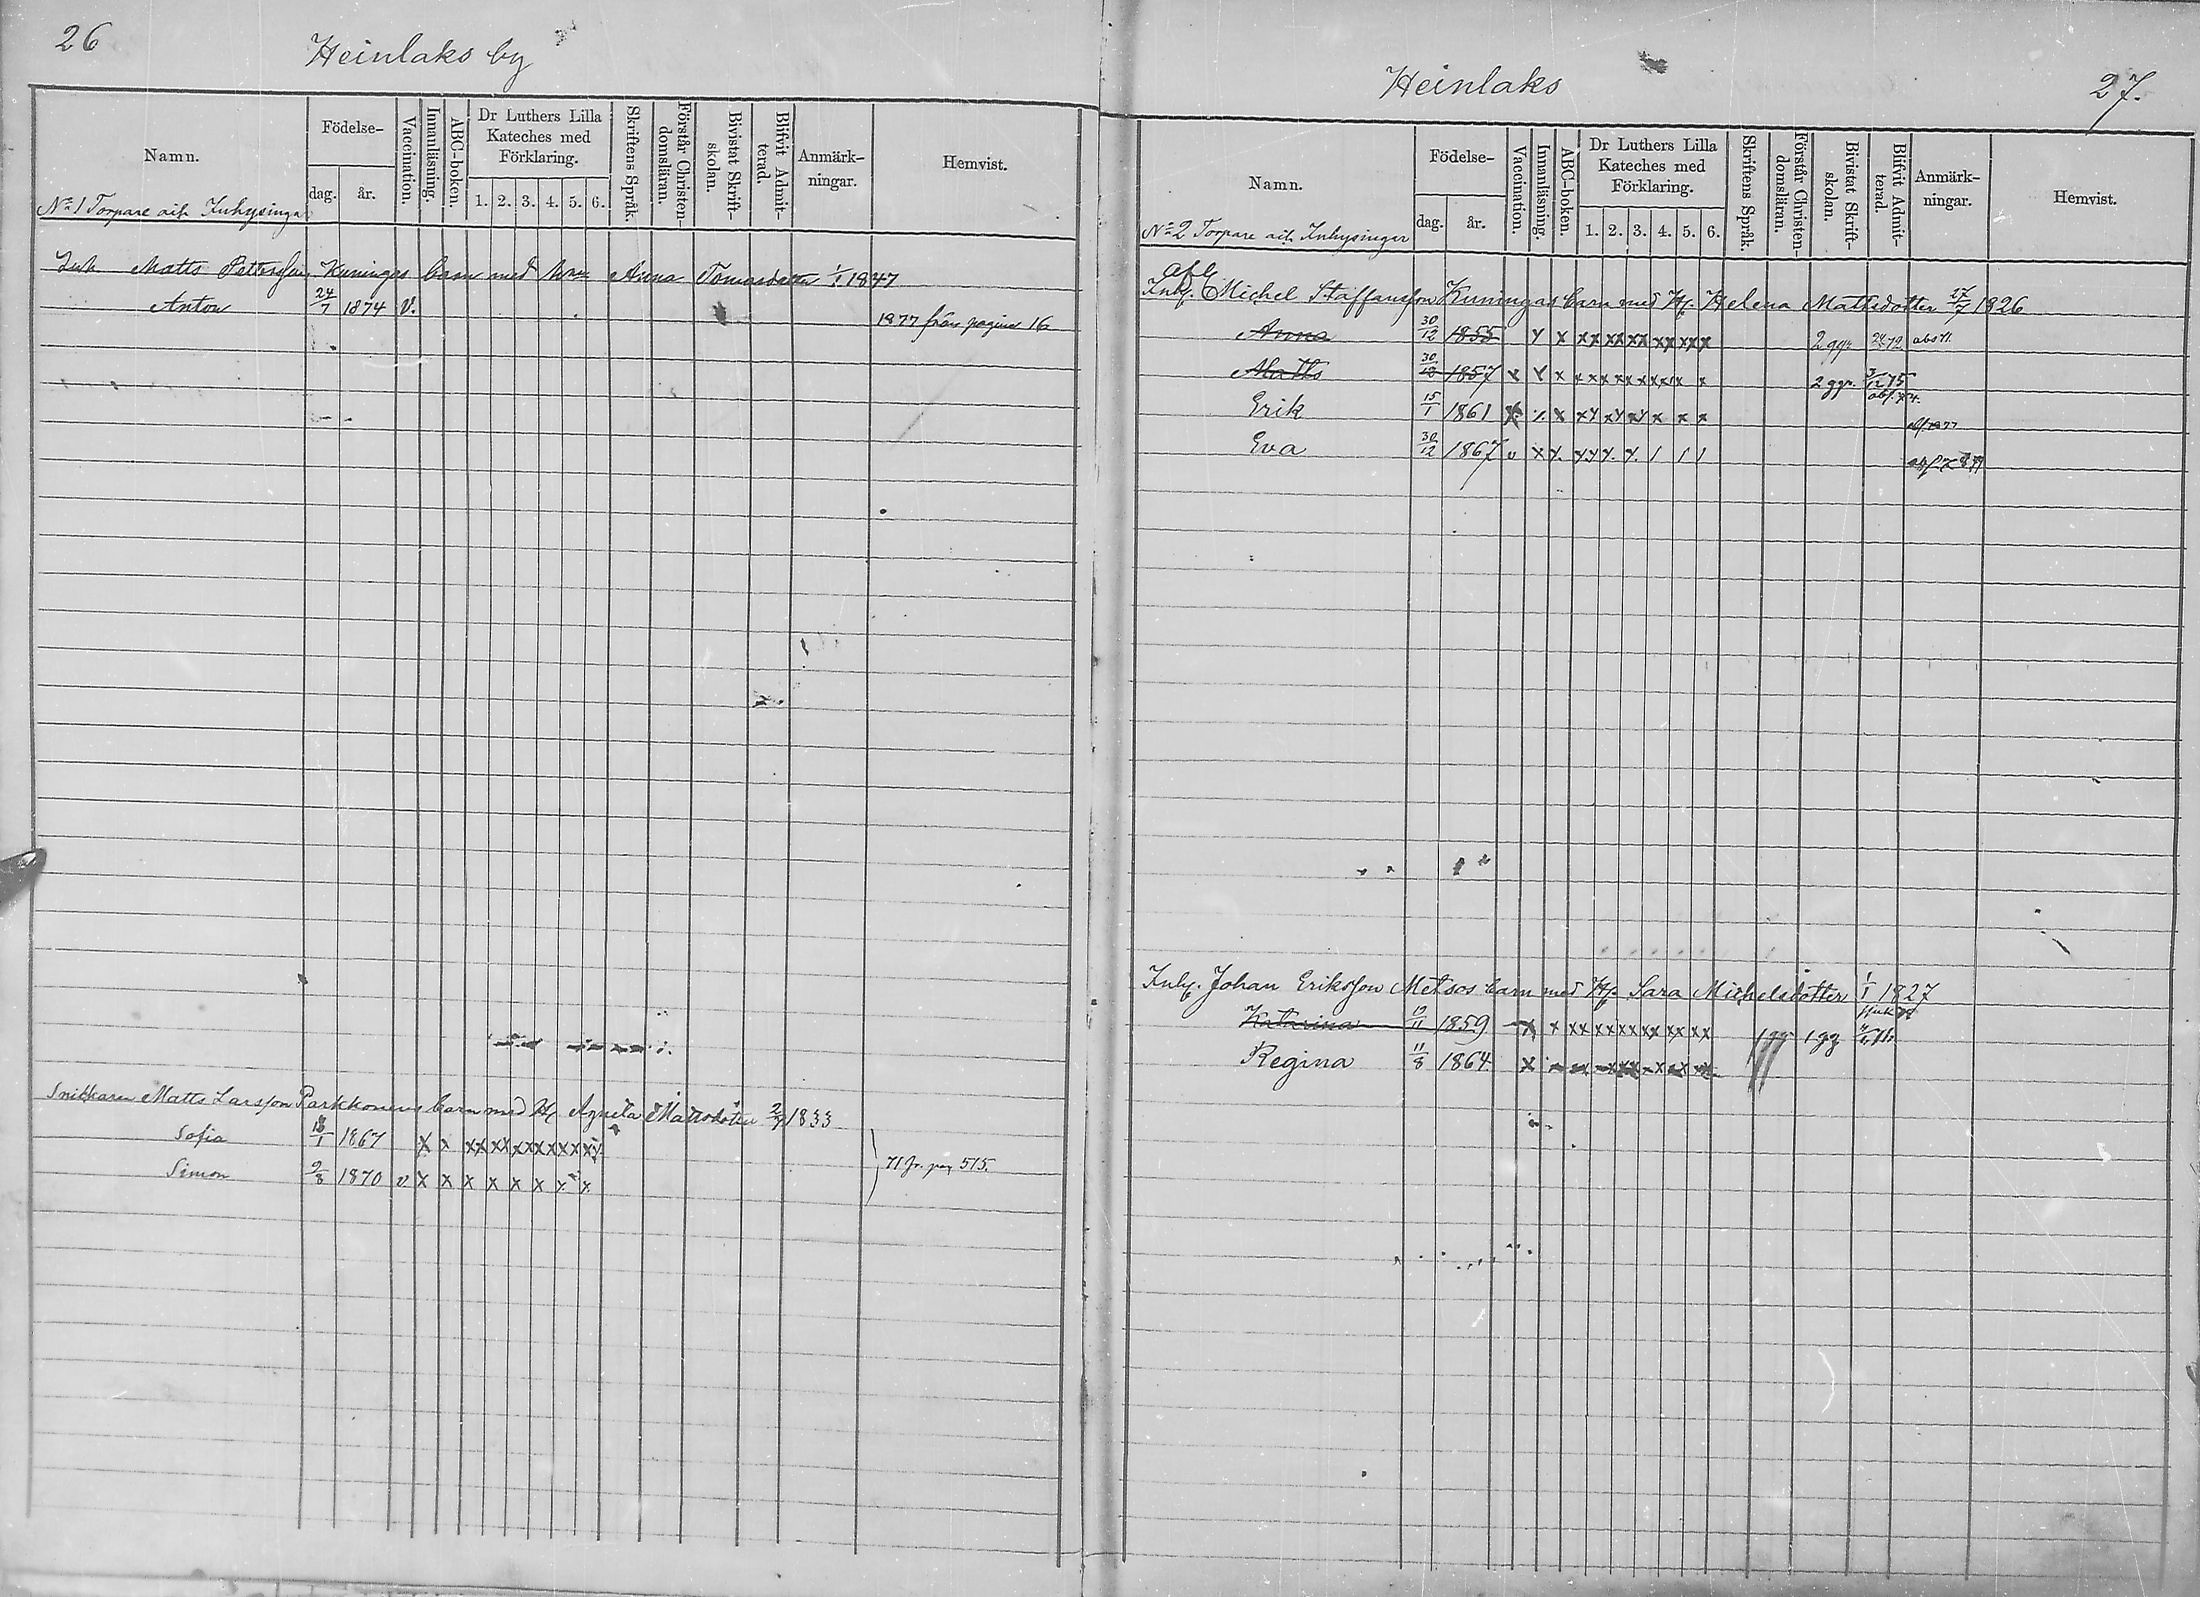 26
Heinlaks by
Namn.
Födelse-
dag.
år.
Vaccination.
Innanläsning.
ABC-boken.
Dr Luthers Lilla
Kateches med
Förklaring.
1. 2. 3. 4. 5. 6.
Skriftens Språk.
Förstår Christen-
domsläran.
Bivistat Skrift-
skolan.
Blifvit Admit-
terad.
Anmärk-
ningar.
Hemvist.
No 1 Torpare och Inhysingar
Inh Matts Pettersson Kuningas barn med hu Anna Tomasdotter 1/1 1847
Anton 24/7 1874 V. 1877 från pagina 16
Snickaren Matts Larsson Parkkonens barn med H. Agneta Mattsdotter 2/7 1833
Sofia 18/1 1867 x x xx xx xx xx xx xx
Simon 9/8 1870 v x x x x x x x x
71 fr. pag 515.
Heinlaks
27.
Namn.
Födelse-
dag.
år.
Vaccination.
Innanläsning.
ABC-boken.
Dr Luthers Lilla
Kateches med
Förklaring.
1. 2. 3. 4. 5. 6.
Skriftens Språk.
Förstår Christen-
domsläran.
Bivistat Skrift-
skolan.
Blifvit Admit-
terad.
Anmärk-
ningar.
Hemvist.
No 2 Torpare och Inhysingar
afl
Inhs. Michel Staffansson Kuningas barn med H. Helena Mattsdotter 27/7 1826
Anna 30/12 1855 x x xx xx xx xx xx xx 2 ggr
Matts 30/12 1857 x x x xx xx xx xx x x 2 ggr. 3/12 75
Erik 15/1 1861 x x xx xx xx x x x
Eva 30/12 1867 v x x
Inhs. Johan Eriksson Metsos barn med H. Sara Michelsdotter 1/1 1827
Katarina 19/11 1859 x x xx xx xx xx xx xx 1 gg
Regina 11/8 1864 x